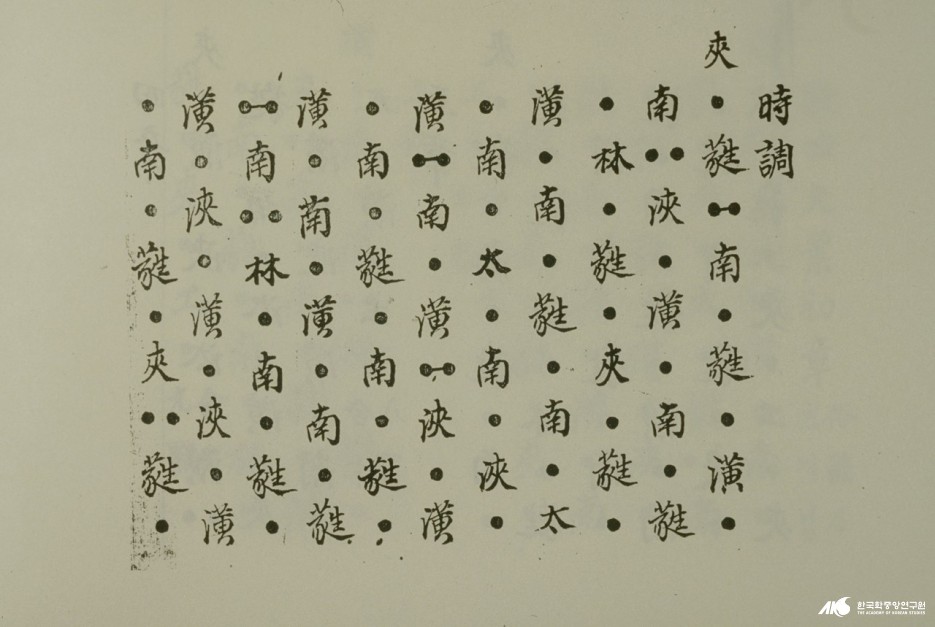 時調
夾●蕤●-●南●蕤●潢●
南●●浹●潢●南●蕤
●林●蕤●夾●蕤●
潢●南●蕤●南●太
●南●太●南●浹●
潢●-●南●潢●-●浹●潢
●南●蕤●南●蕤●
潢●南●潢●南●蕤
●-●南●●林●南●蕤●
潢●浹●潢●浹●潢
●南●蕤●夾●●蕤●
AKS 한국학중앙연구원
THE ACADEMY OF KOREAN STUDIES